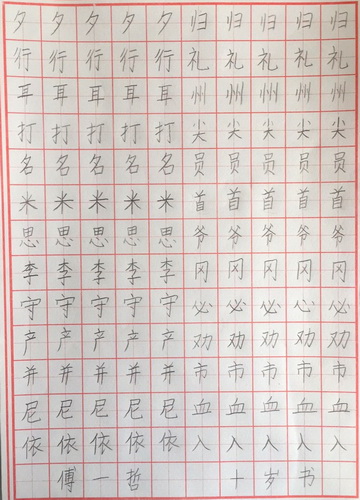 夕夕夕夕夕归归归归归
行行行行行礼礼礼礼礼
耳耳耳耳耳州州州州州
打打打打打尖尖尖尖尖
名名名名名员员员员员
米米米米米首首首首首
思思思思思爷爷爷爷爷
李李李李李冈冈冈冈冈
守守守守守必必必心必
产产产产产劝劝劝劝劝
并并并并并市市市市市
尼尼尼尼尼血血血血血
依依依依依入入入入入
傅一哲 十岁书